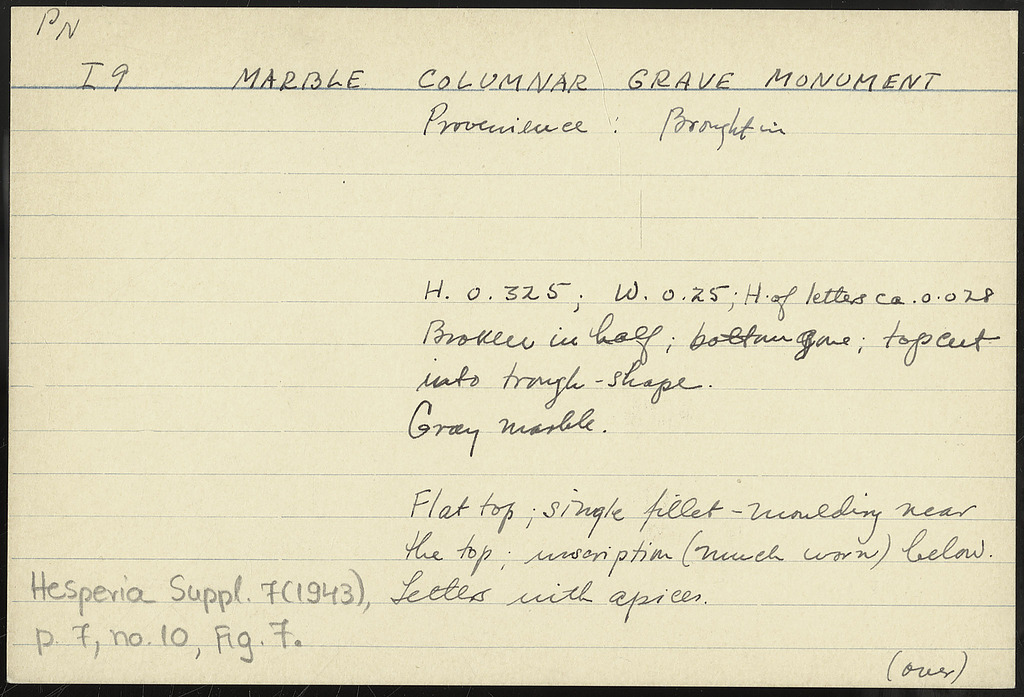 PN
I 9 MARBLE COLUMNAR GRAVE MONUMENT
Provenience : Brought in
H. 0.325; W. 0.25; H. of letters ca. 0.028
Broken in half; bottom gone; top cut
into trough-shape.
Gray marble.
Flat top; single fillet-moulding near
the top; inscription (much worn) below.
Letters with apices.
Hesperia Suppl. 7(1943),
p. 7, no. 10, Fig. 7.
(over)